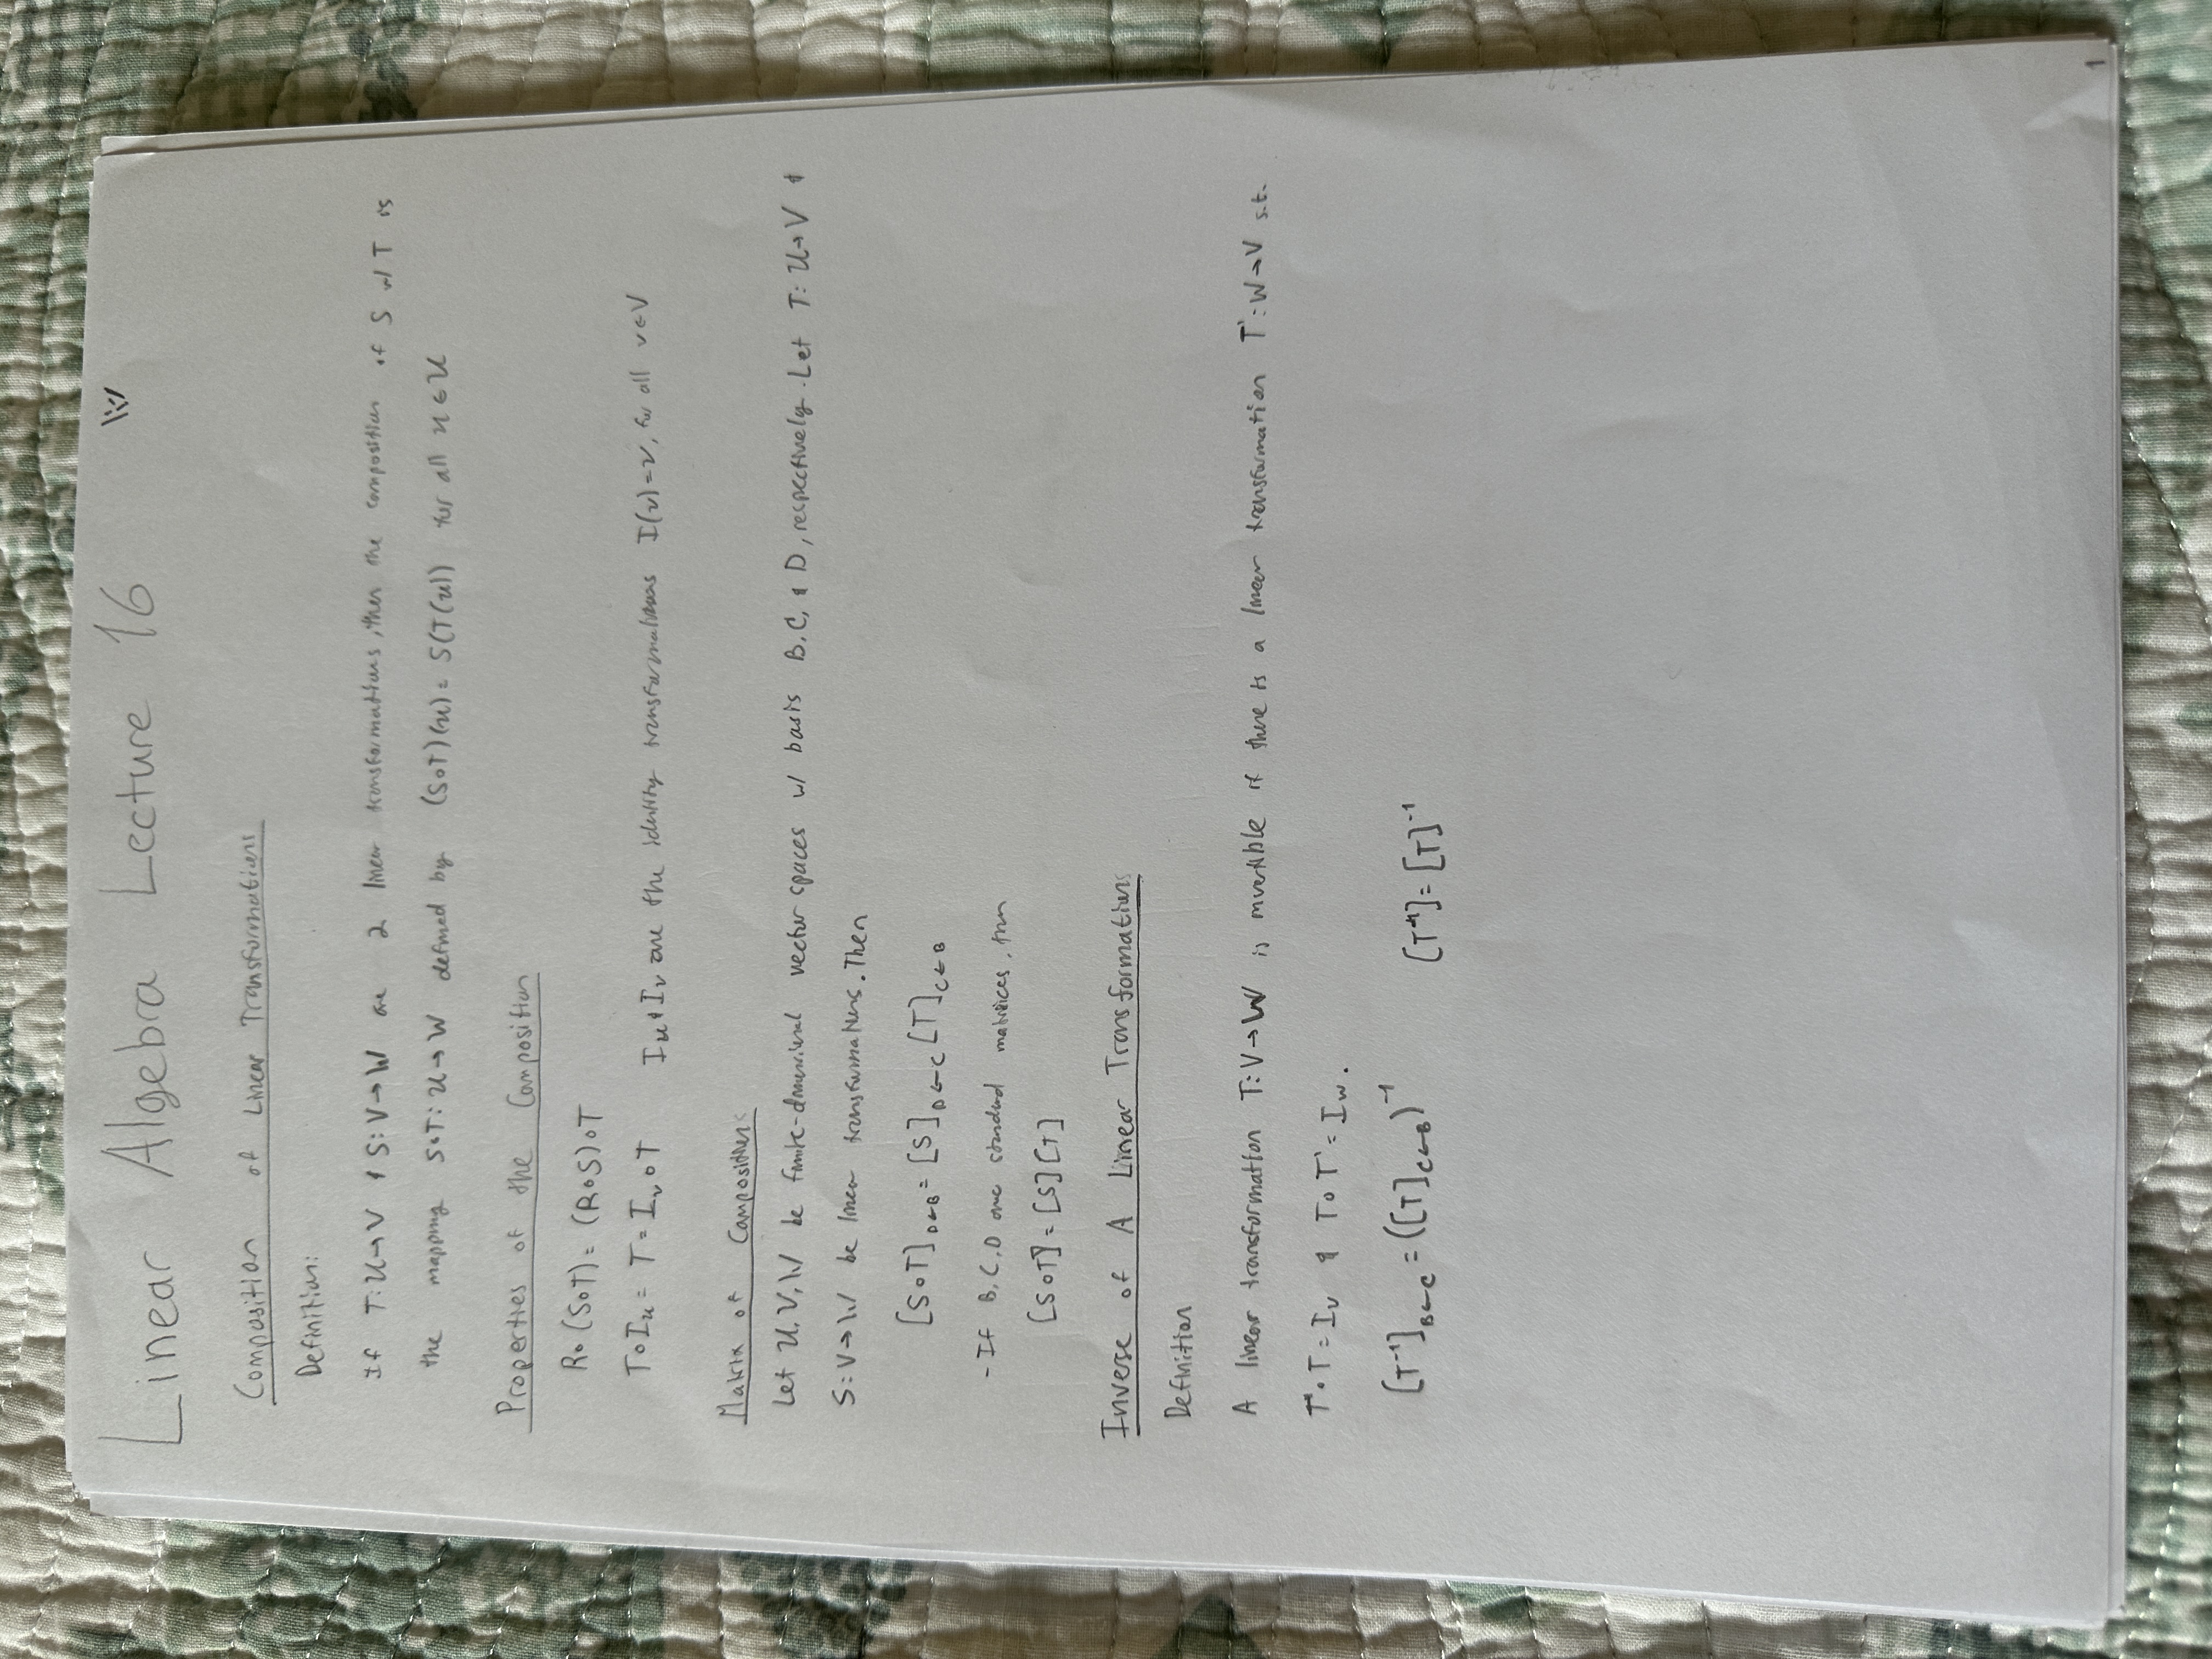 Linear Algebra Lecture 16
W
Composition of Linear Transformations
Definition:
If T: U→V & S: V→W are 2 linear transformations, then the composition of S w/ T is
the mapping S∘T: U→W defined by (S∘T)(u) = S(T(u)) for all u ∈ U
Properties of the Composition
R∘(S∘T) = (R∘S)∘T
T∘I_u = T = I_v∘T I_u & I_v are the identity transformations I(v)=v, for all v∈V
Matrix of Compositions
Let U, V, W be finite-dimensional vector spaces w/ basis B, C, & D, respectively. Let T: U→V &
S: V→W be linear transformations. Then
[S∘T]_D←B = [S]_D←C [T]_C←B
- If B, C, D are standard matrices, then
[S∘T] = [S][T]
Inverse of A Linear Transformations
Definition
A linear transformation T: V→W is invertible if there is a linear transformation T': W→V s.t.
T'∘T = I_V & T∘T' = I_W.
[T⁻¹]_B←C = ([T]_C←B)⁻¹ [T⁻¹] = [T]⁻¹
1